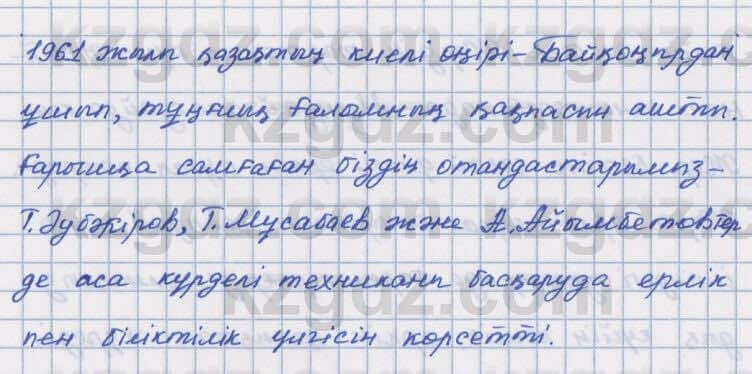 1961 жылы қазақтың киелі өңірі – Байқоңырдан
ұшып, тұңғыш ғалымның қақпасын ашты.
Ғарышқа самғаған біздің отандастарымыз –
Т. Әубәкіров, Т. Мұсабаев және А. Айымбетовтер
де аса күрделі техниканы басқаруда ерлік
пен біліктілік үлгісін көрсетті.